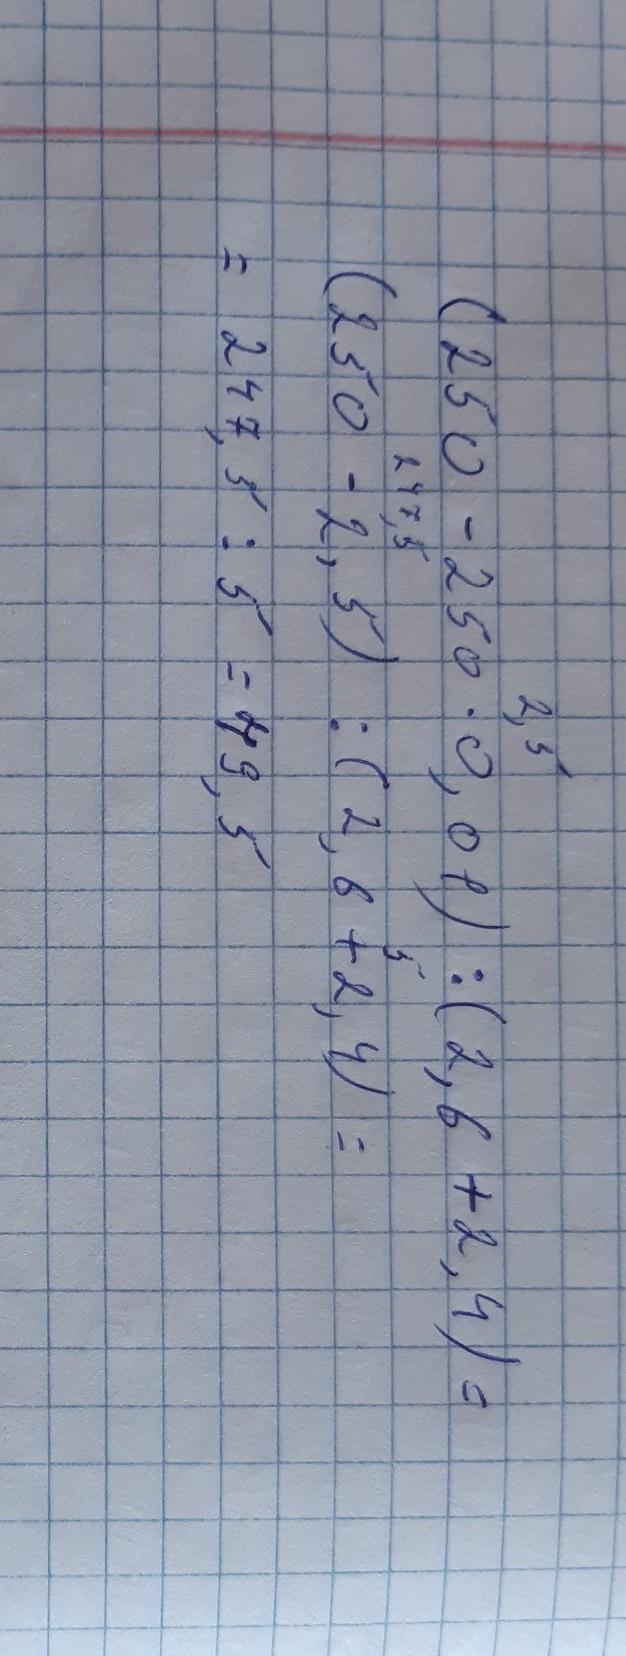 2,5
(250 - 250 · 0,01) : (2,6 + 2,4) =
247,5 5
(250 - 2,5) : (2,6 + 2,4) =
= 247,5 : 5 = 49,5